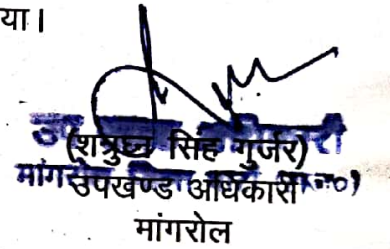 या।
(शत्रुघ्न सिंह गुर्जर)
उपखण्ड अधिकारी
मांगरोल